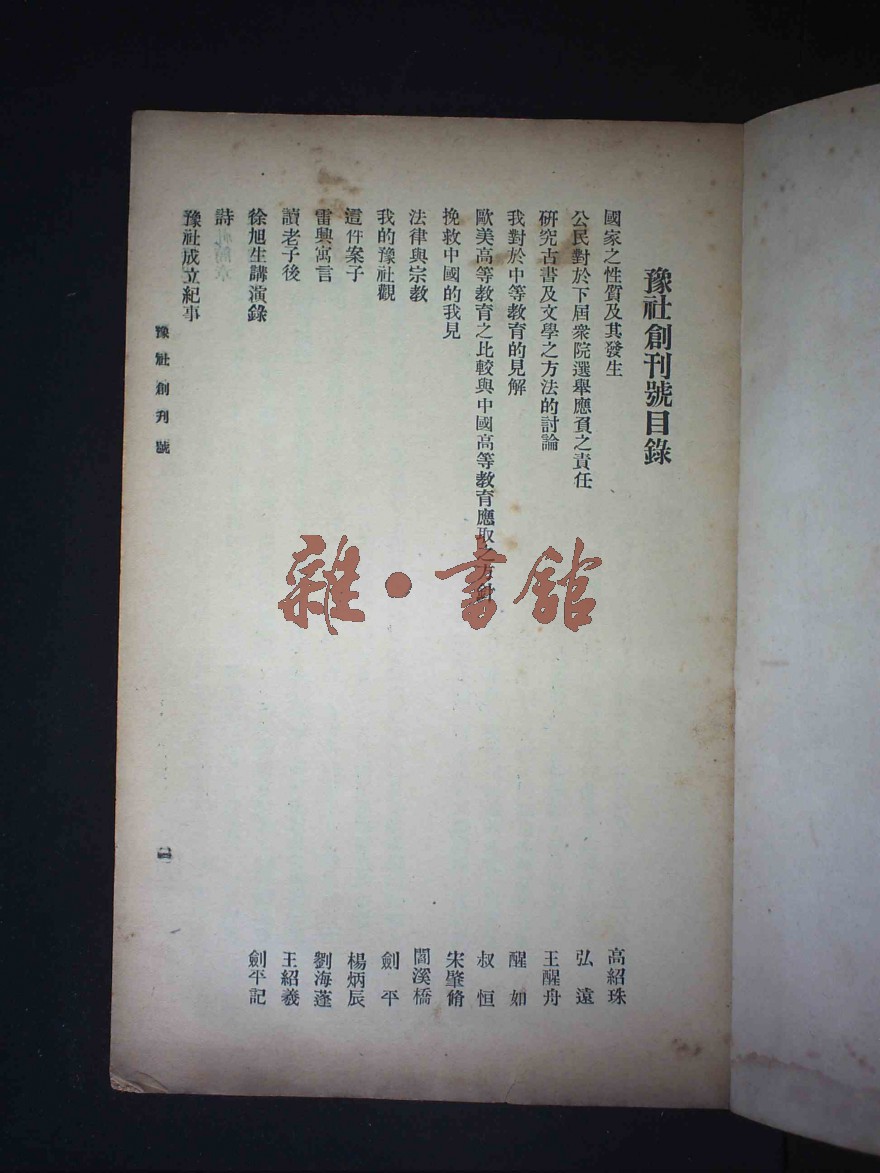 豫社創刊號目錄
國家之性質及其發生 高紹珠
公民對於下屆衆院選舉應負之責任 弘遠
研究古書及文學之方法的討論 王醒舟
我對於中等教育的見解 醒如
歐美高等教育之比較與中國高等教育應取之方針 叔恒
挽救中國的我見 宋肇脩
法律與宗教 閻溪橋
我的豫社觀 劍平
這件案子 楊炳辰
雷興寓言 劉海蓬
讀老子後 王紹羲
徐旭生講演錄 劍平記
詩
豫社成立紀事
豫社創刊號
雜·書館